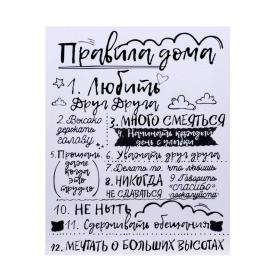 Правила дома
1. Любить
Друг Друга
2. Высоко
держать
голову
3. МНОГО СМЕЯТЬСЯ
4. Начинать каждый
день с улыбки
5. Прощать,
даже
когда
это
трудно
6. Уважать друг друга
7. Делать то, что любишь
8. НИКОГДА
НЕ СДАВАТЬСЯ
9. Говорить
"спасибо",
пожалуйста
10. НЕ НЫТЬ
11. Сдерживать обещания
12. МЕЧТАТЬ О БОЛЬШИХ ВЫСОТАХ